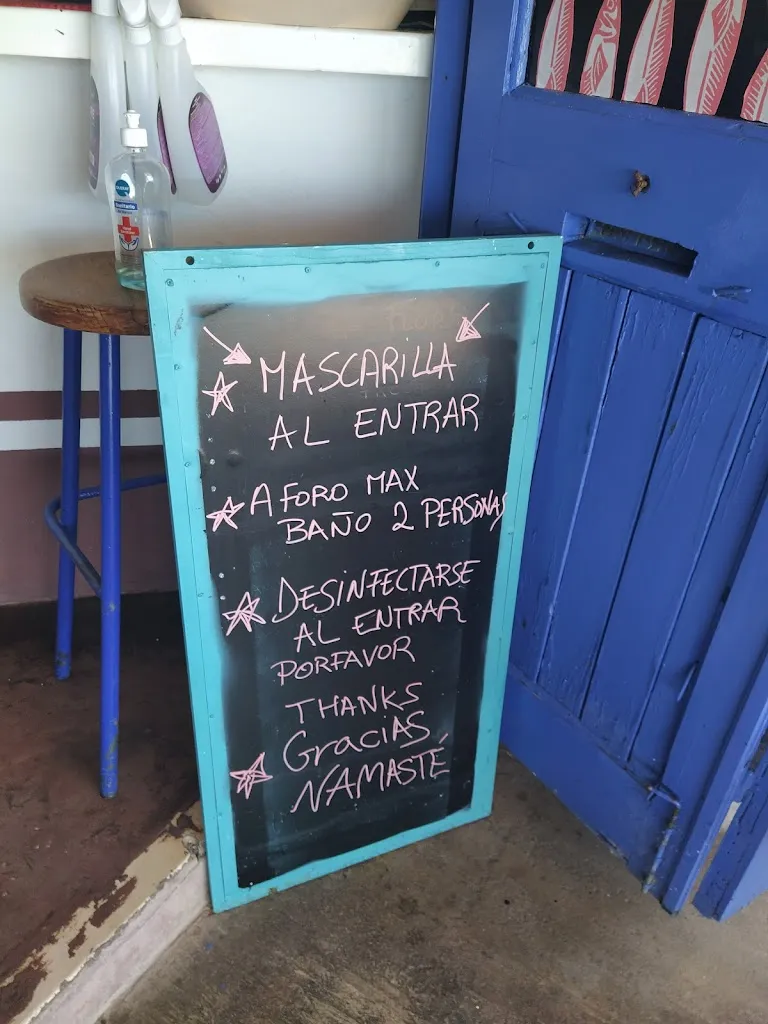 MASCARILLA
AL ENTRAR
AFORO MAX
BAÑO 2 PERSONAS
DESINFECTARSE
AL ENTRAR
PORFAVOR
THANKS
GraciAS
NAMASTÉ